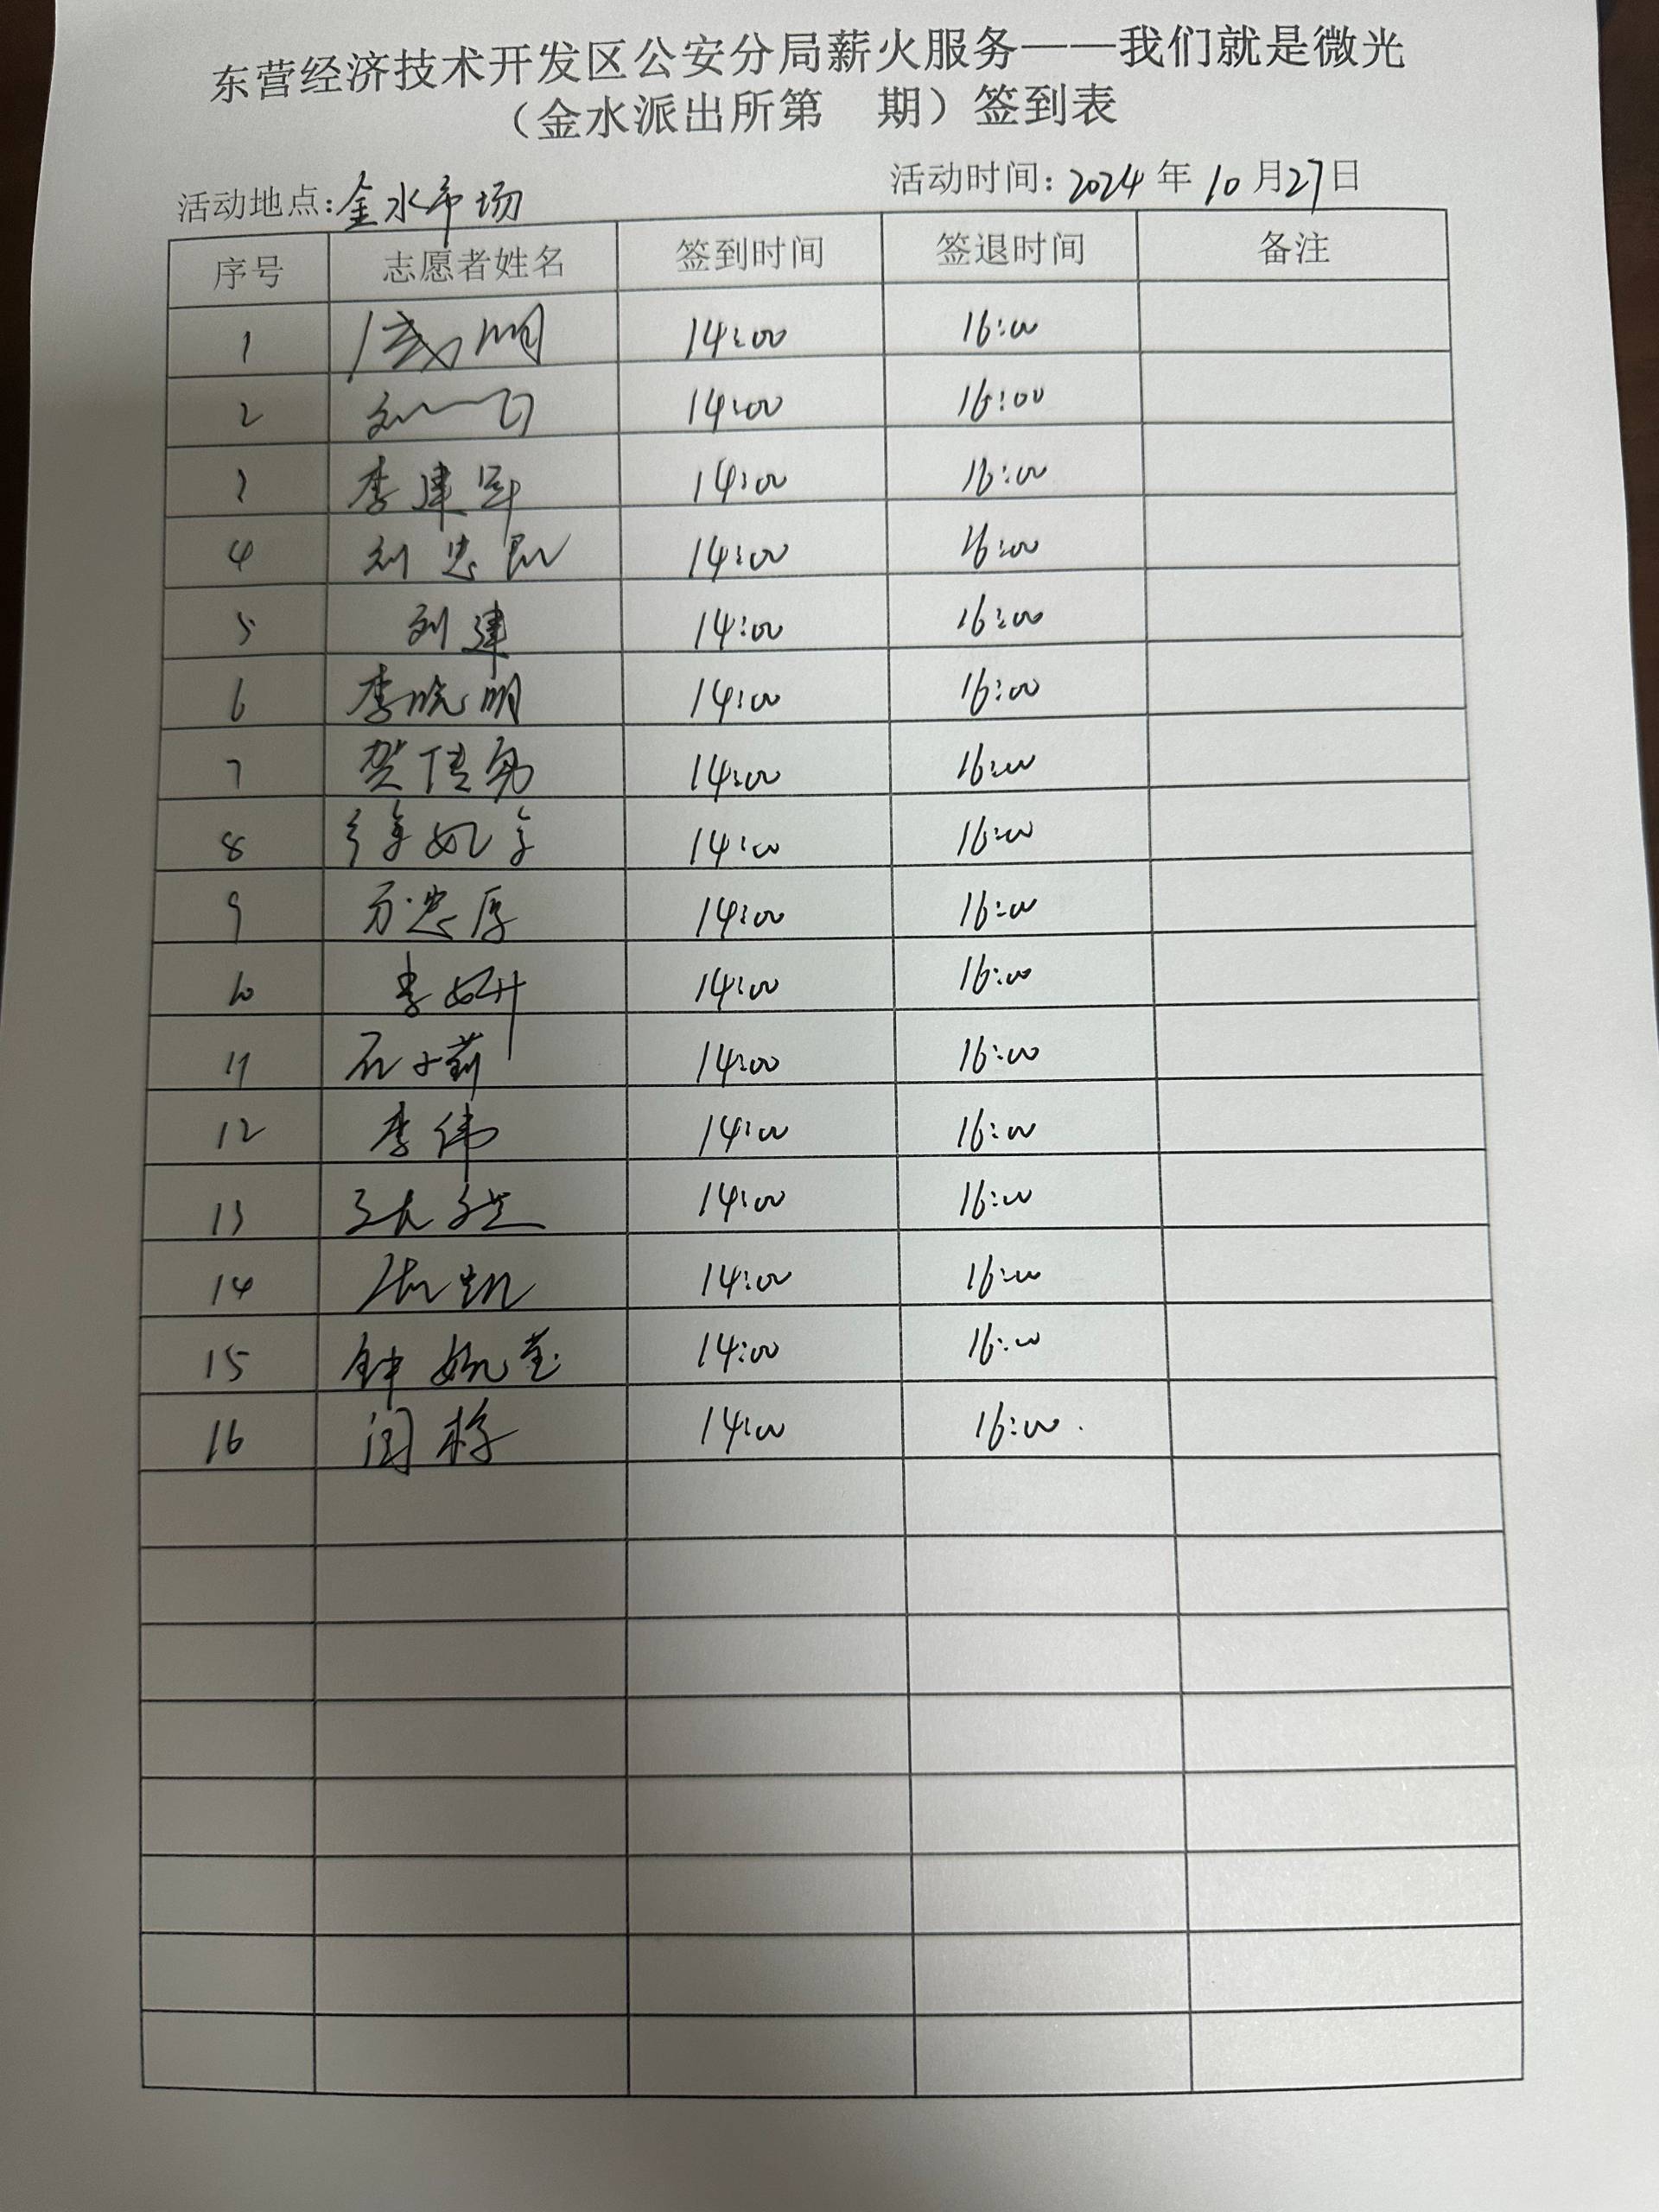 东营经济技术开发区公安分局薪火服务——我们就是微光
（金水派出所第 期）签到表
活动地点：金水市场 活动时间：2024年10月27日
序号 志愿者姓名 签到时间 签退时间 备注
1 14:00 16:00
2 14:00 16:00
3 李建军 14:00 16:00
4 刘忠凯 14:00 16:00
5 刘建 14:00 16:00
6 李晓明 14:00 16:00
7 贺传勇 14:00 16:00
8 14:00 16:00
9 万忠厚 14:00 16:00
10 李妍 14:00 16:00
11 石小莉 14:00 16:00
12 李伟 14:00 16:00
13 14:00 16:00
14 14:00 16:00
15 钟婉莹 14:00 16:00
16 闫梅 14:00 16:00